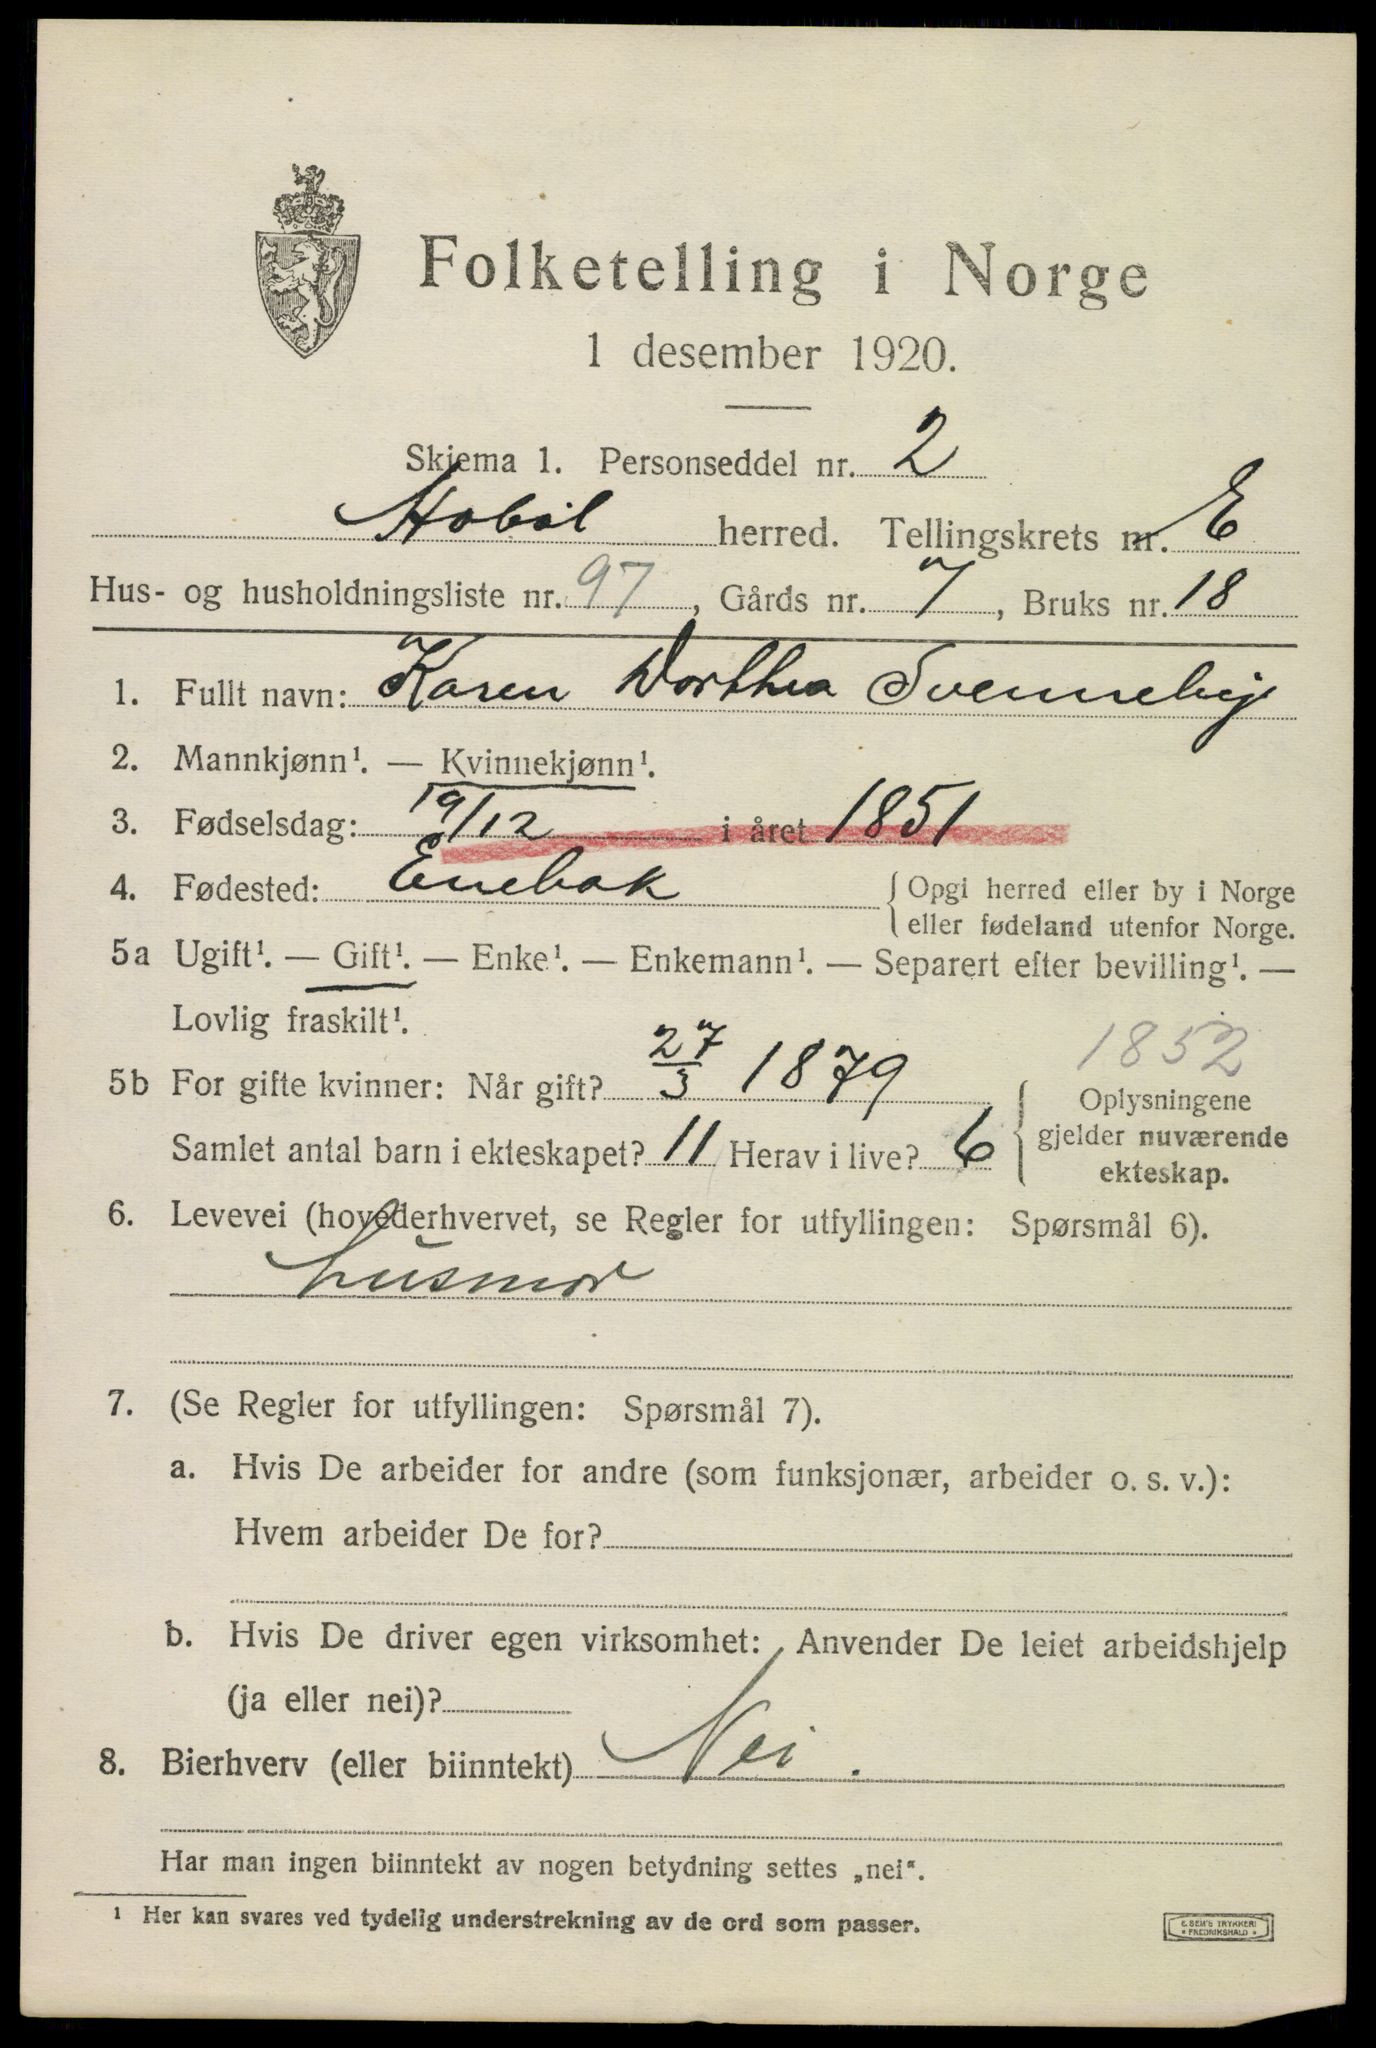 Folketelling i Norge
1 desember 1920.
Skjema 1. Personseddel nr. 2
Hobøl herred. Tellingskrets nr. E
Hus- og husholdningsliste nr. 97, Gårds nr. 7, Bruks nr. 18
1. Fullt navn: Karen Dorthea Svenneby
2. Mannkjønn¹. — Kvinnekjønn¹.
3. Fødselsdag: 19/12 i året 1851
4. Fødested: Enebak {Opgi herred eller by i Norge
eller fødeland utenfor Norge.
5a Ugift¹. — Gift¹. — Enke¹. — Enkemann¹. — Separert efter bevilling¹. —
Lovlig fraskilt¹.
1852
5b For gifte kvinner: Når gift? 27/3 1879
Samlet antal barn i ekteskapet? 11 Herav i live? 6
{Oplysningene
gjelder nuværende
ekteskap.
6. Levevei (hovederhvervet, se Regler for utfyllingen: Spørsmål 6).
husmor
7. (Se Regler for utfyllingen: Spørsmål 7).
a. Hvis De arbeider for andre (som funksjonær, arbeider o. s. v.):
Hvem arbeider De for?
b. Hvis De driver egen virksomhet: Anvender De leiet arbeidshjelp
(ja eller nei)?
8. Bierhverv (eller biinntekt) Nei.
Har man ingen biinntekt av nogen betydning settes „nei“.
¹ Her kan svares ved tydelig understrekning av de ord som passer.
E SEM'S TRYKKERI
* FREDRIKSHALD *